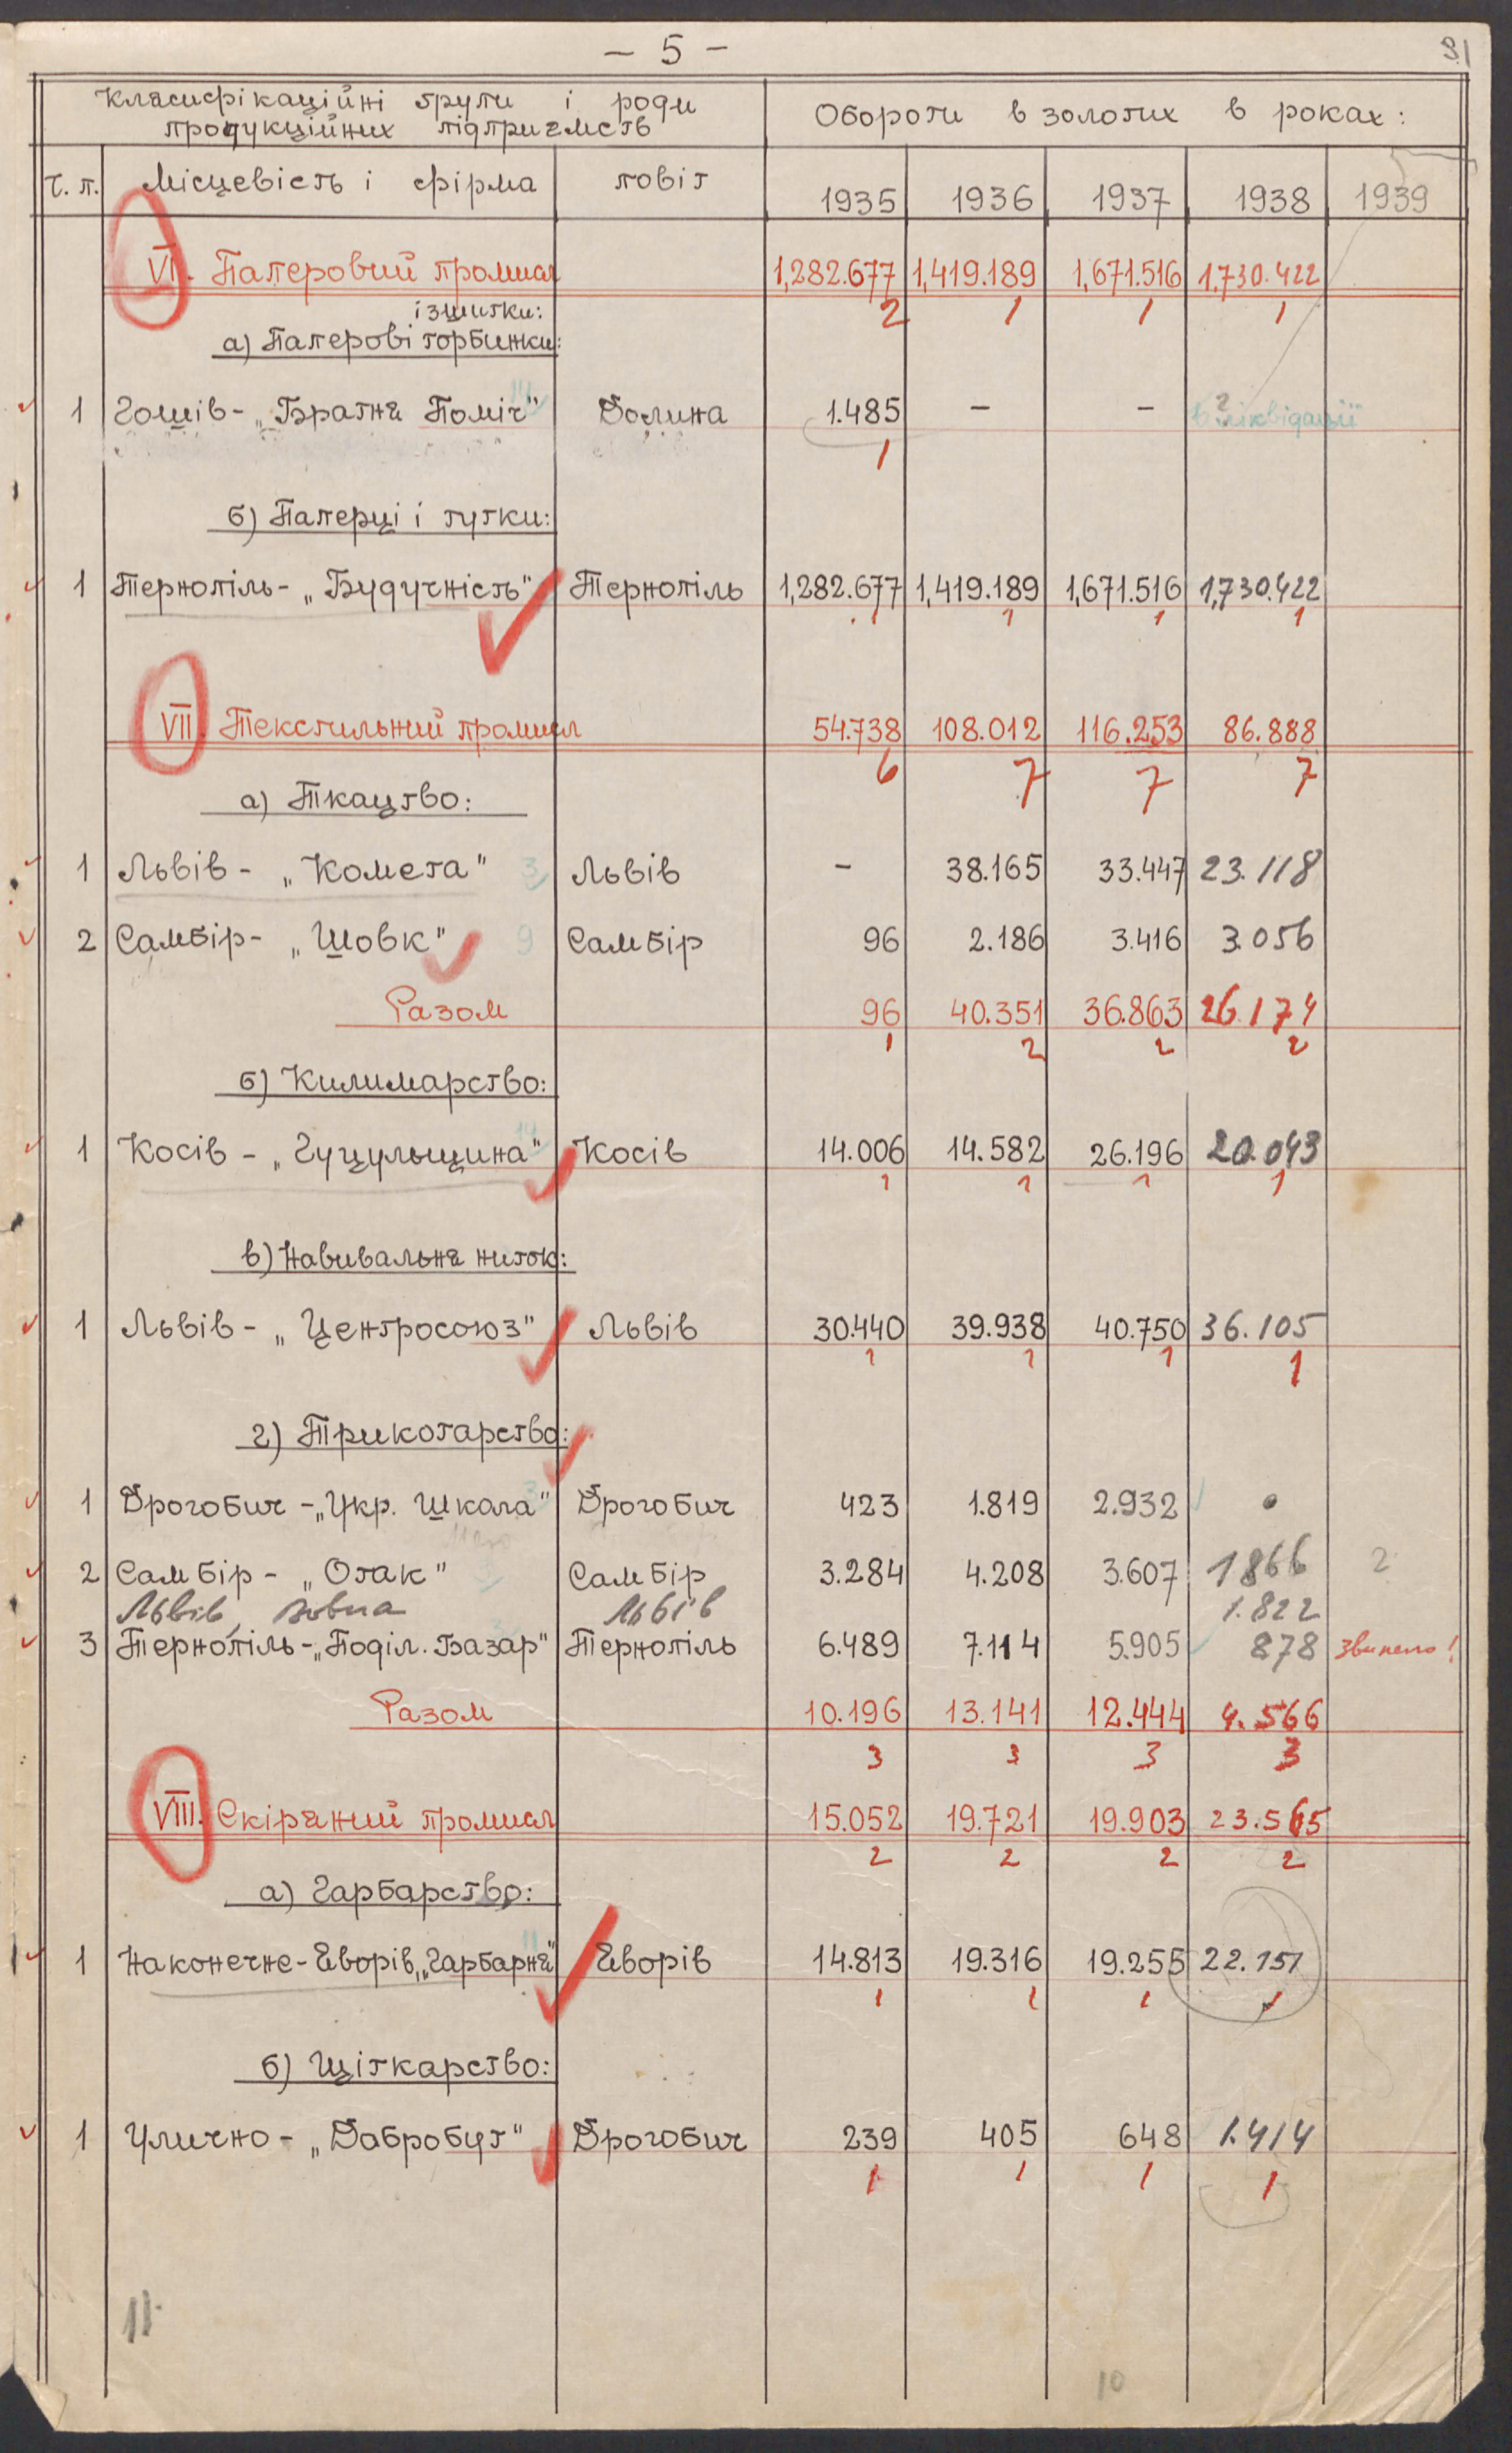 – 5 –
31
Класифікаційні групи і роди
продукційних підприємств
Обороти в золотих в роках:
ч. п. Місцевість і фірма повіт 1935 1936 1937 1938 1939
VI. Паперовий промисл 1,282.677 1,419.189 1,671.516 1,730.422
2 1 1 1
і зшитки:
а) Паперові торбинки:
1 Гошів - „Братня Поміч" Долина 1.485 – – В ліквідації
1
б) Паперці і тутки:
1 Тернопіль - „Будучність" Тернопіль 1,282.677 1,419.189 1,671.516 1,730.422
1 1 1 1
VII. Текстильний промисл 54.738 108.012 116.253 86.888
6 7 7 7
а) Ткацтво:
1 Львів - „Комета" 3 Львів – 38.165 33.447 23.118
2 Самбір - „Шовк" 9 Самбір 96 2.186 3.416 3.056
Разом 96 40.351 36.863 26.174
1 2 2 2
б) Килимарство:
1 Косів - „Гуцульщина" 14 Косів 14.006 14.582 26.196 20.043
1 1 1 1
в) Навивальня ниток:
1 Львів - „Центросоюз" Львів 30.440 39.938 40.750 36.105
1 1 1 1
г) Трикотарство:
1 Дрогобич - „Укр. Шкала" 3 Дрогобич 423 1.819 2.932
2 Самбір - „Отак" Самбір 3.284 4.208 3.607 1866 2
Львів, Львів 1.822
3 Тернопіль - „Поділ. Базар" Тернопіль 6.489 7.114 5.905 878 звинено!
Разом 10.196 13.141 12.444 4.566
3 3 3 3
VIII. Скіряний промисл 15.052 19.721 19.903 23.565
2 2 2 2
а) Гарбарство:
1 Наконечне - Яворів, „Гарбарня" 11 Яворів 14.813 19.316 19.255 22.151
1 1 1 1
б) Щіткарство:
1 Улично - „Добробут" Дрогобич 239 405 648 1.414
1 1 1 1
11
10